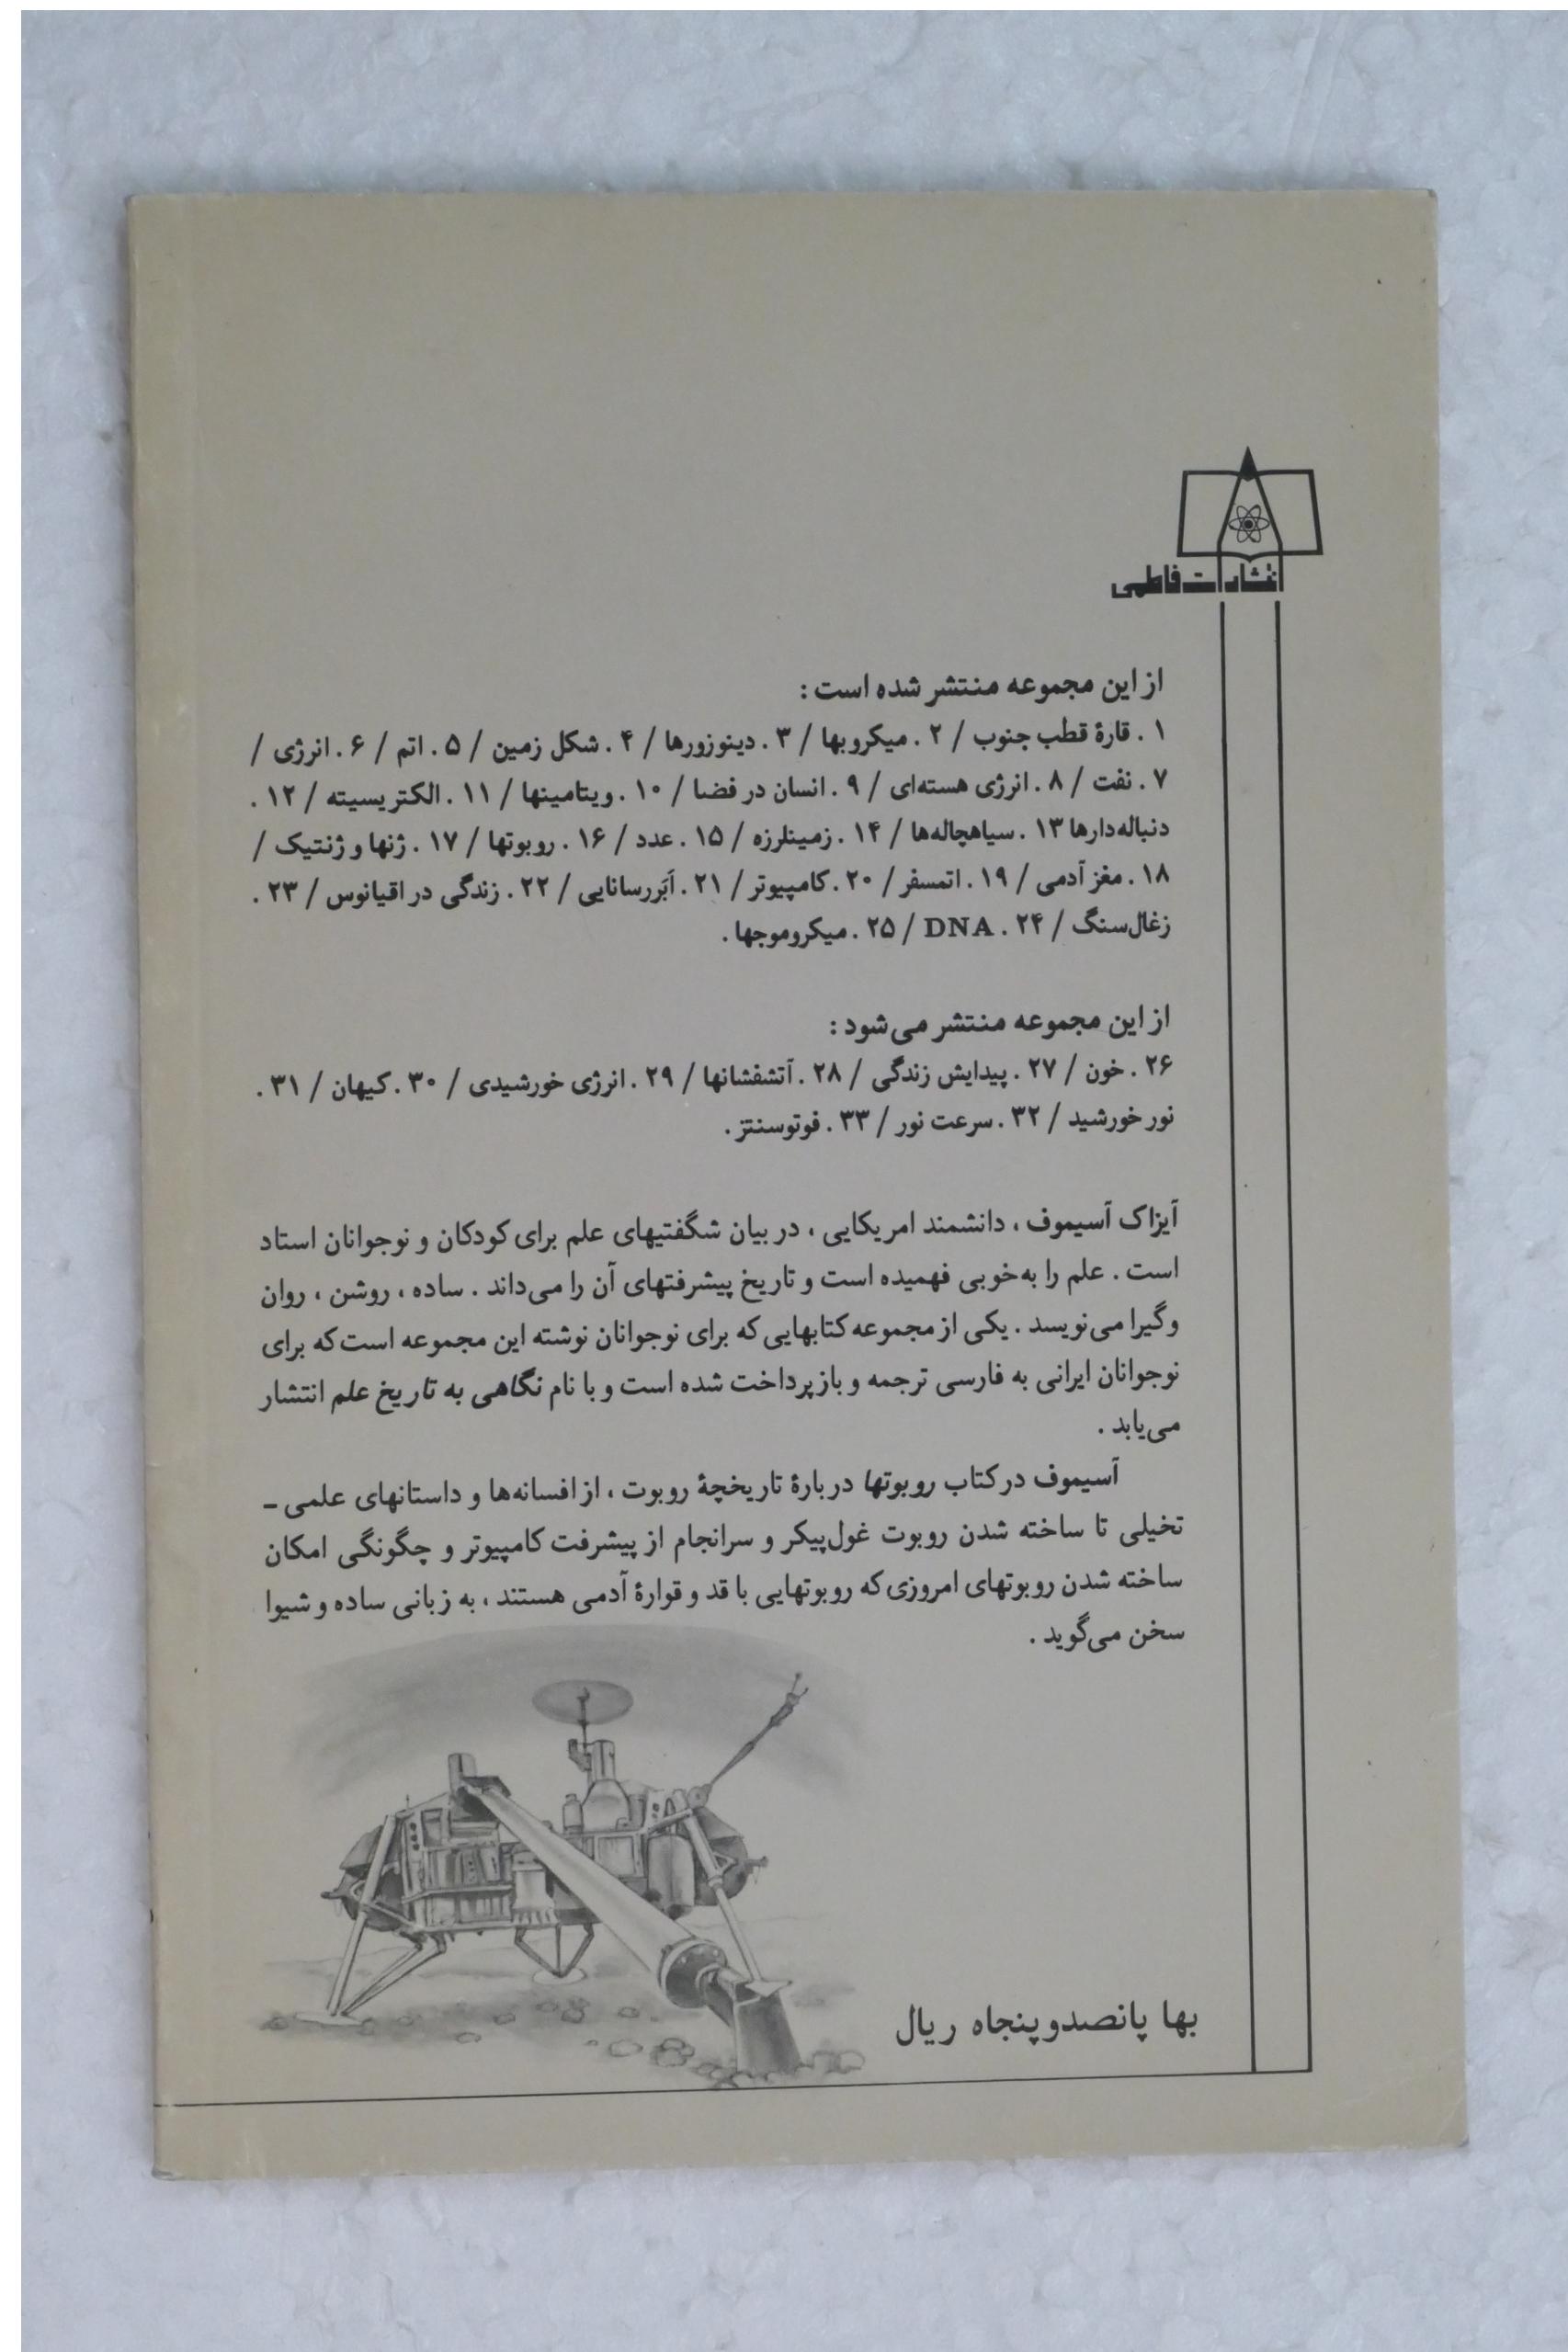 انتشارات فاطمی
از این مجموعه منتشر شده است :
۱ . قارهٔ قطب جنوب / ۲ . میکروبها / ۳ . دینوزورها / ۴ . شکل زمین / ۵ . اتم / ۶ . انرژی /
۷ . نفت / ۸ . انرژی هسته‌ای / ۹ . انسان در فضا / ۱۰ . ویتامینها / ۱۱ . الکتریسیته / ۱۲ .
دنباله‌دارها ۱۳ . سیاهچاله‌ها / ۱۴ . زمینلرزه / ۱۵ . عدد / ۱۶ . روبوتها / ۱۷ . ژنها و ژنتیک /
۱۸ . مغز آدمی / ۱۹ . اتمسفر / ۲۰ . کامپیوتر / ۲۱ . اَبَررسانایی / ۲۲ . زندگی در اقیانوس / ۲۳ .
زغال‌سنگ / ۲۴ . DNA / ۲۵ . میکروموجها .
از این مجموعه منتشر می‌شود :
۲۶ . خون / ۲۷ . پیدایش زندگی / ۲۸ . آتشفشانها / ۲۹ . انرژی خورشیدی / ۳۰ . کیهان / ۳۱ .
نور خورشید / ۳۲ . سرعت نور / ۳۳ . فوتوسنتز .
آیزاک آسیموف ، دانشمند امریکایی ، در بیان شگفتیهای علم برای کودکان و نوجوانان استاد
است . علم را به‌خوبی فهمیده است و تاریخ پیشرفتهای آن را می‌داند . ساده ، روشن ، روان
و گیرا می‌نویسد . یکی از مجموعه کتابهایی که برای نوجوانان نوشته این مجموعه است که برای
نوجوانان ایرانی به فارسی ترجمه و بازپرداخت شده است و با نام نگاهی به تاریخ علم انتشار
می‌یابد .
آسیموف در کتاب روبوتها دربارهٔ تاریخچهٔ روبوت ، از افسانه‌ها و داستانهای علمی –
تخیلی تا ساخته شدن روبوت غول‌پیکر و سرانجام از پیشرفت کامپیوتر و چگونگی امکان
ساخته شدن روبوتهای امروزی که روبوتهایی با قد و قوارهٔ آدمی هستند ، به زبانی ساده و شیوا
سخن می‌گوید .
بها پانصدوپنجاه ریال